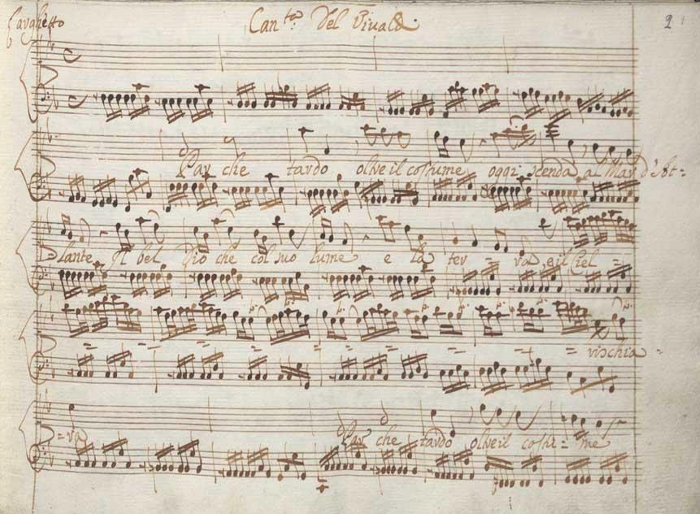 Larghetto Can.ta Del Vivaldi. 2
Par che tardo oltre il costume oggi scenda al Mar d'At=
lante Il bel Dio che col suo lume e la ter = ra e il Ciel =
= = = = = = rischia =
= ra Par che tardo oltre il costu = me